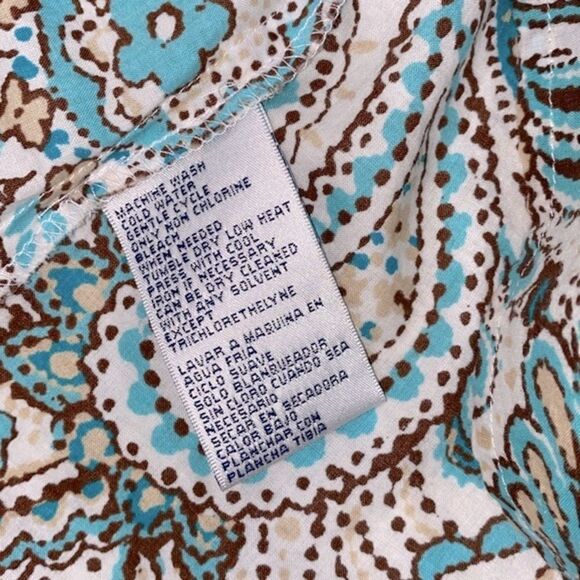 MACHINE WASH
COLD WATER
GENTLE CYCLE
ONLY NON CHLORINE
BLEACH
WHEN NEEDED
TUMBLE DRY LOW HEAT
PRESS WITH COOL
IRON IF NECESSARY
CAN BE DRY CLEANED
WITH ANY SOLVENT
EXCEPT
TRICHLORETHELYNE
LAVAR A MAQUINA EN
AGUA FRIA
CICLO SUAVE
SOLO BLANQUEADOR
SIN CLORO CUANDO SEA
NECESARIO
SECAR EN SECADORA
CALOR BAJO
PLANCHAR CON
PLANCHA TIBIA